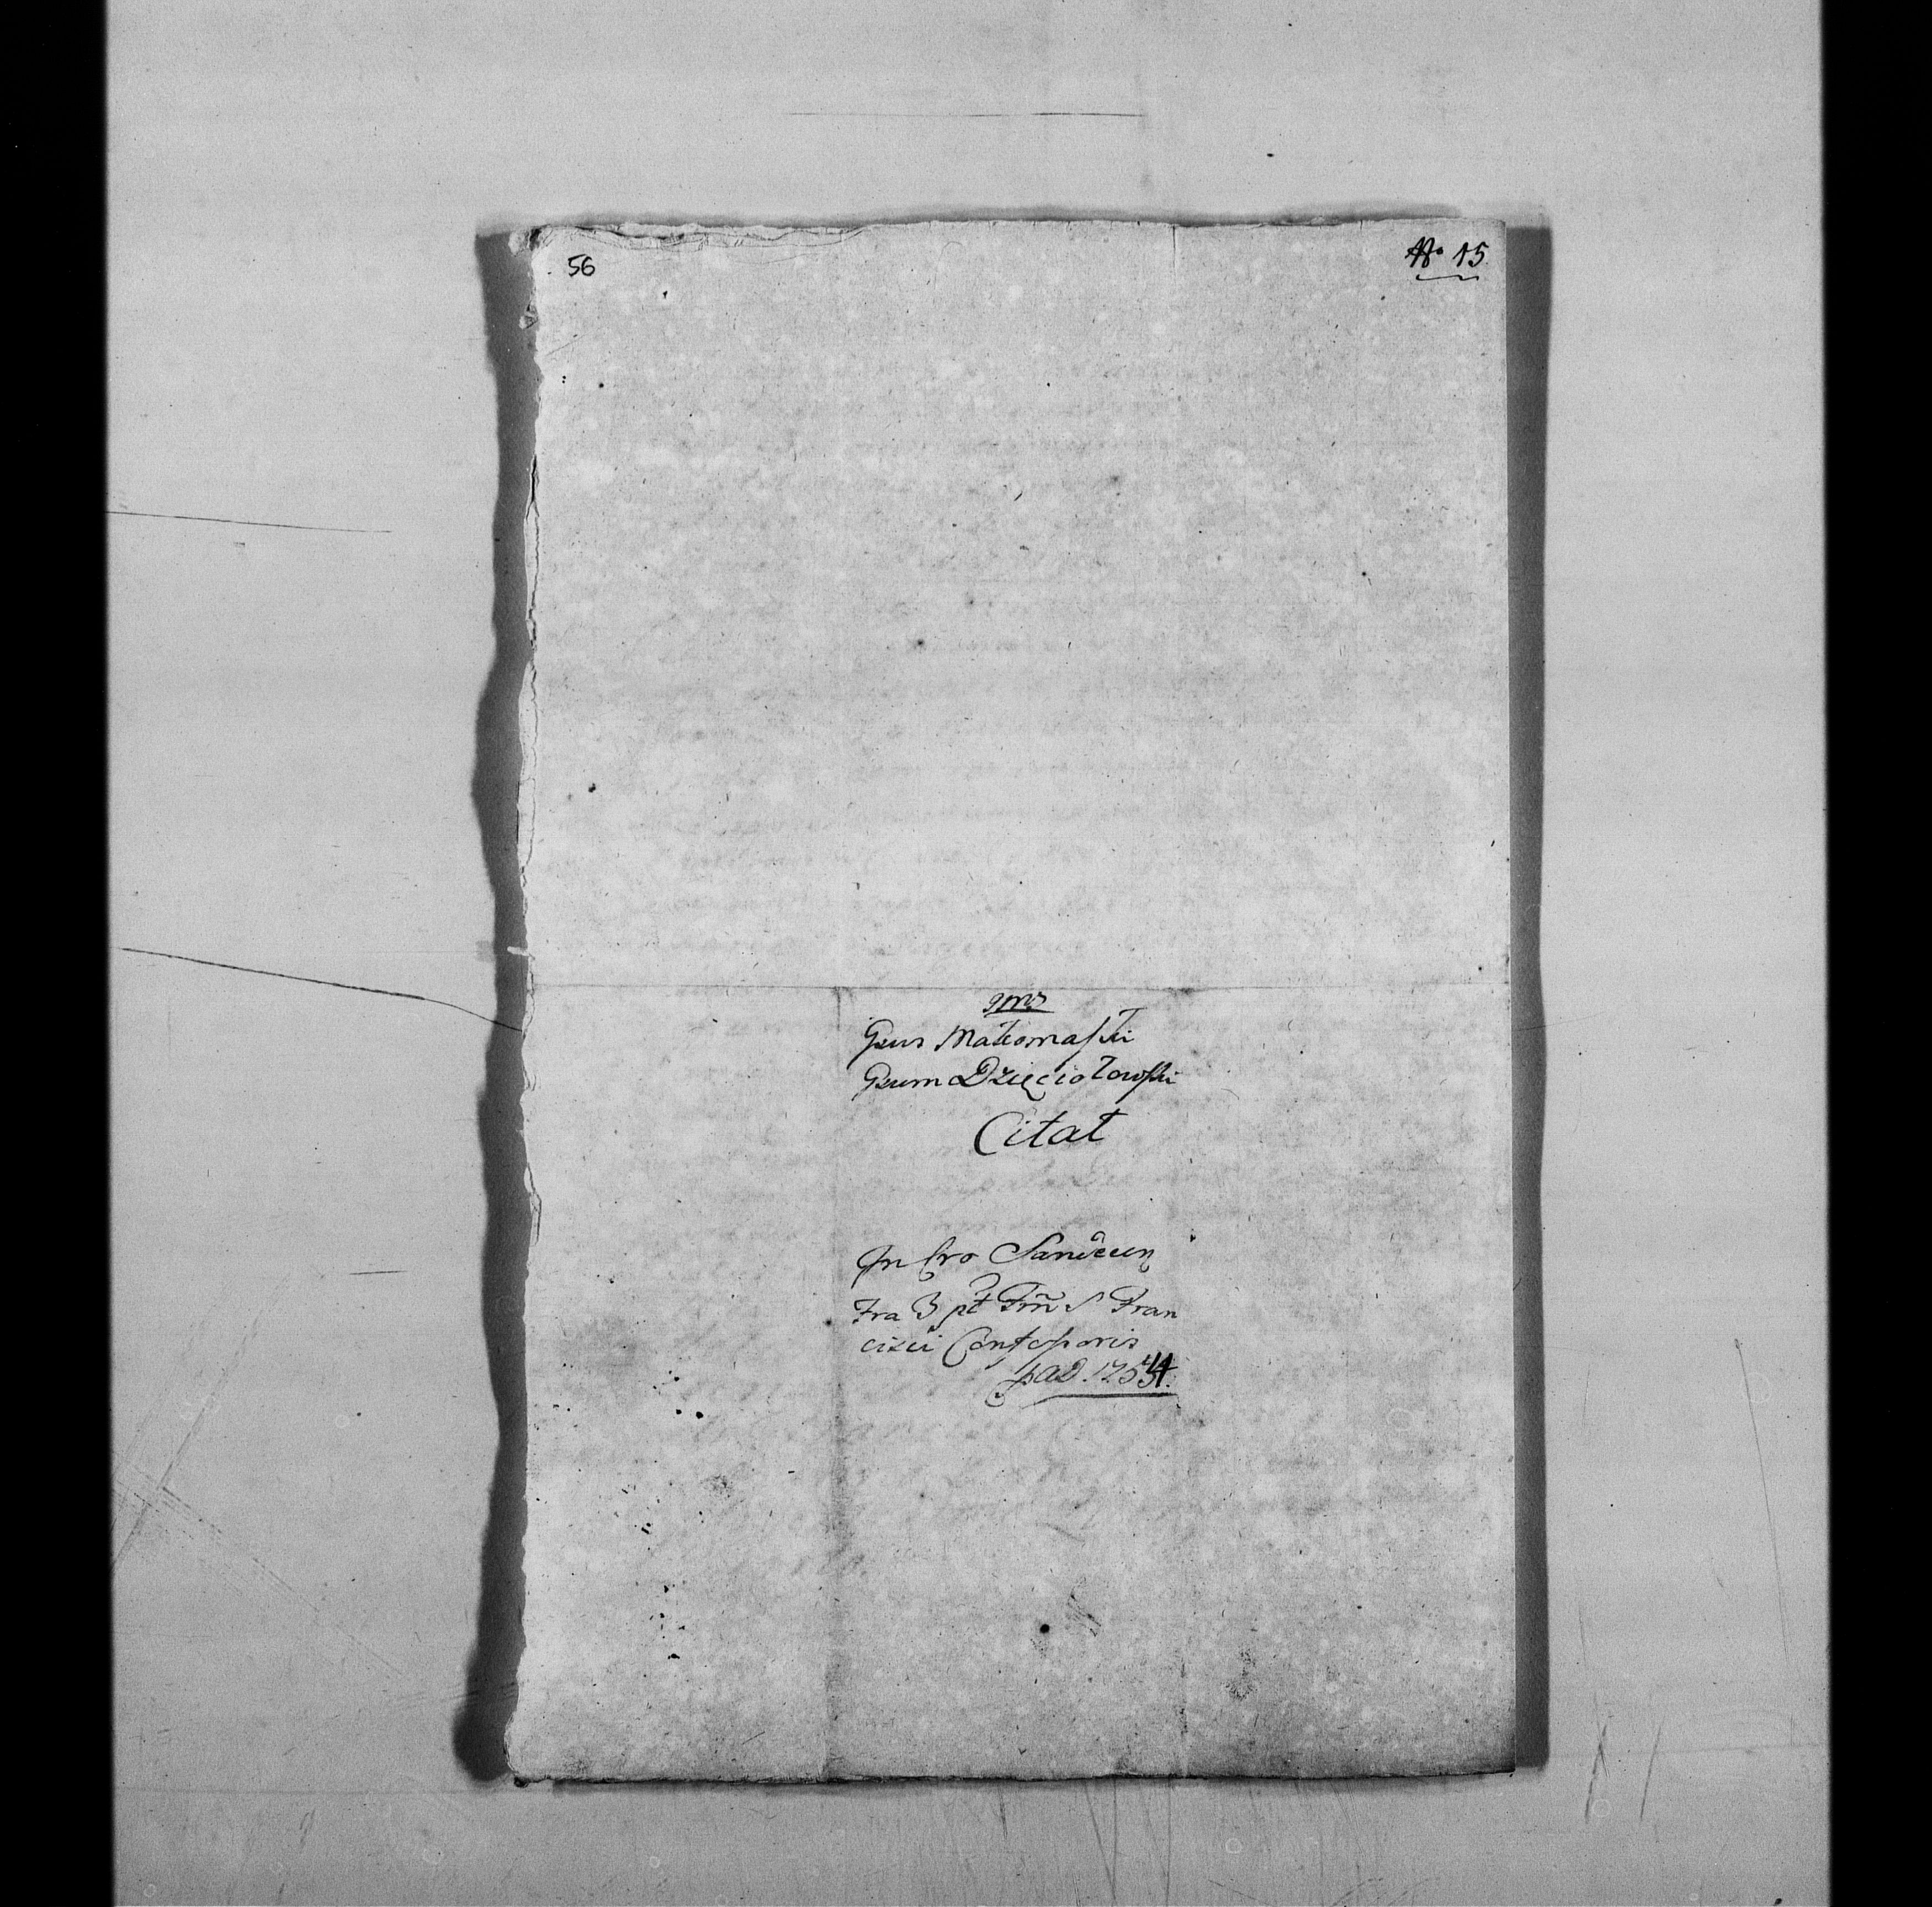 56
No 15.
Gsus Małomaski
Gsum Dzięciołowski
Citat
In Cro Sandecen
Fra 3 pt Fm S Fran
cisci Confessoris
AD. 1754.